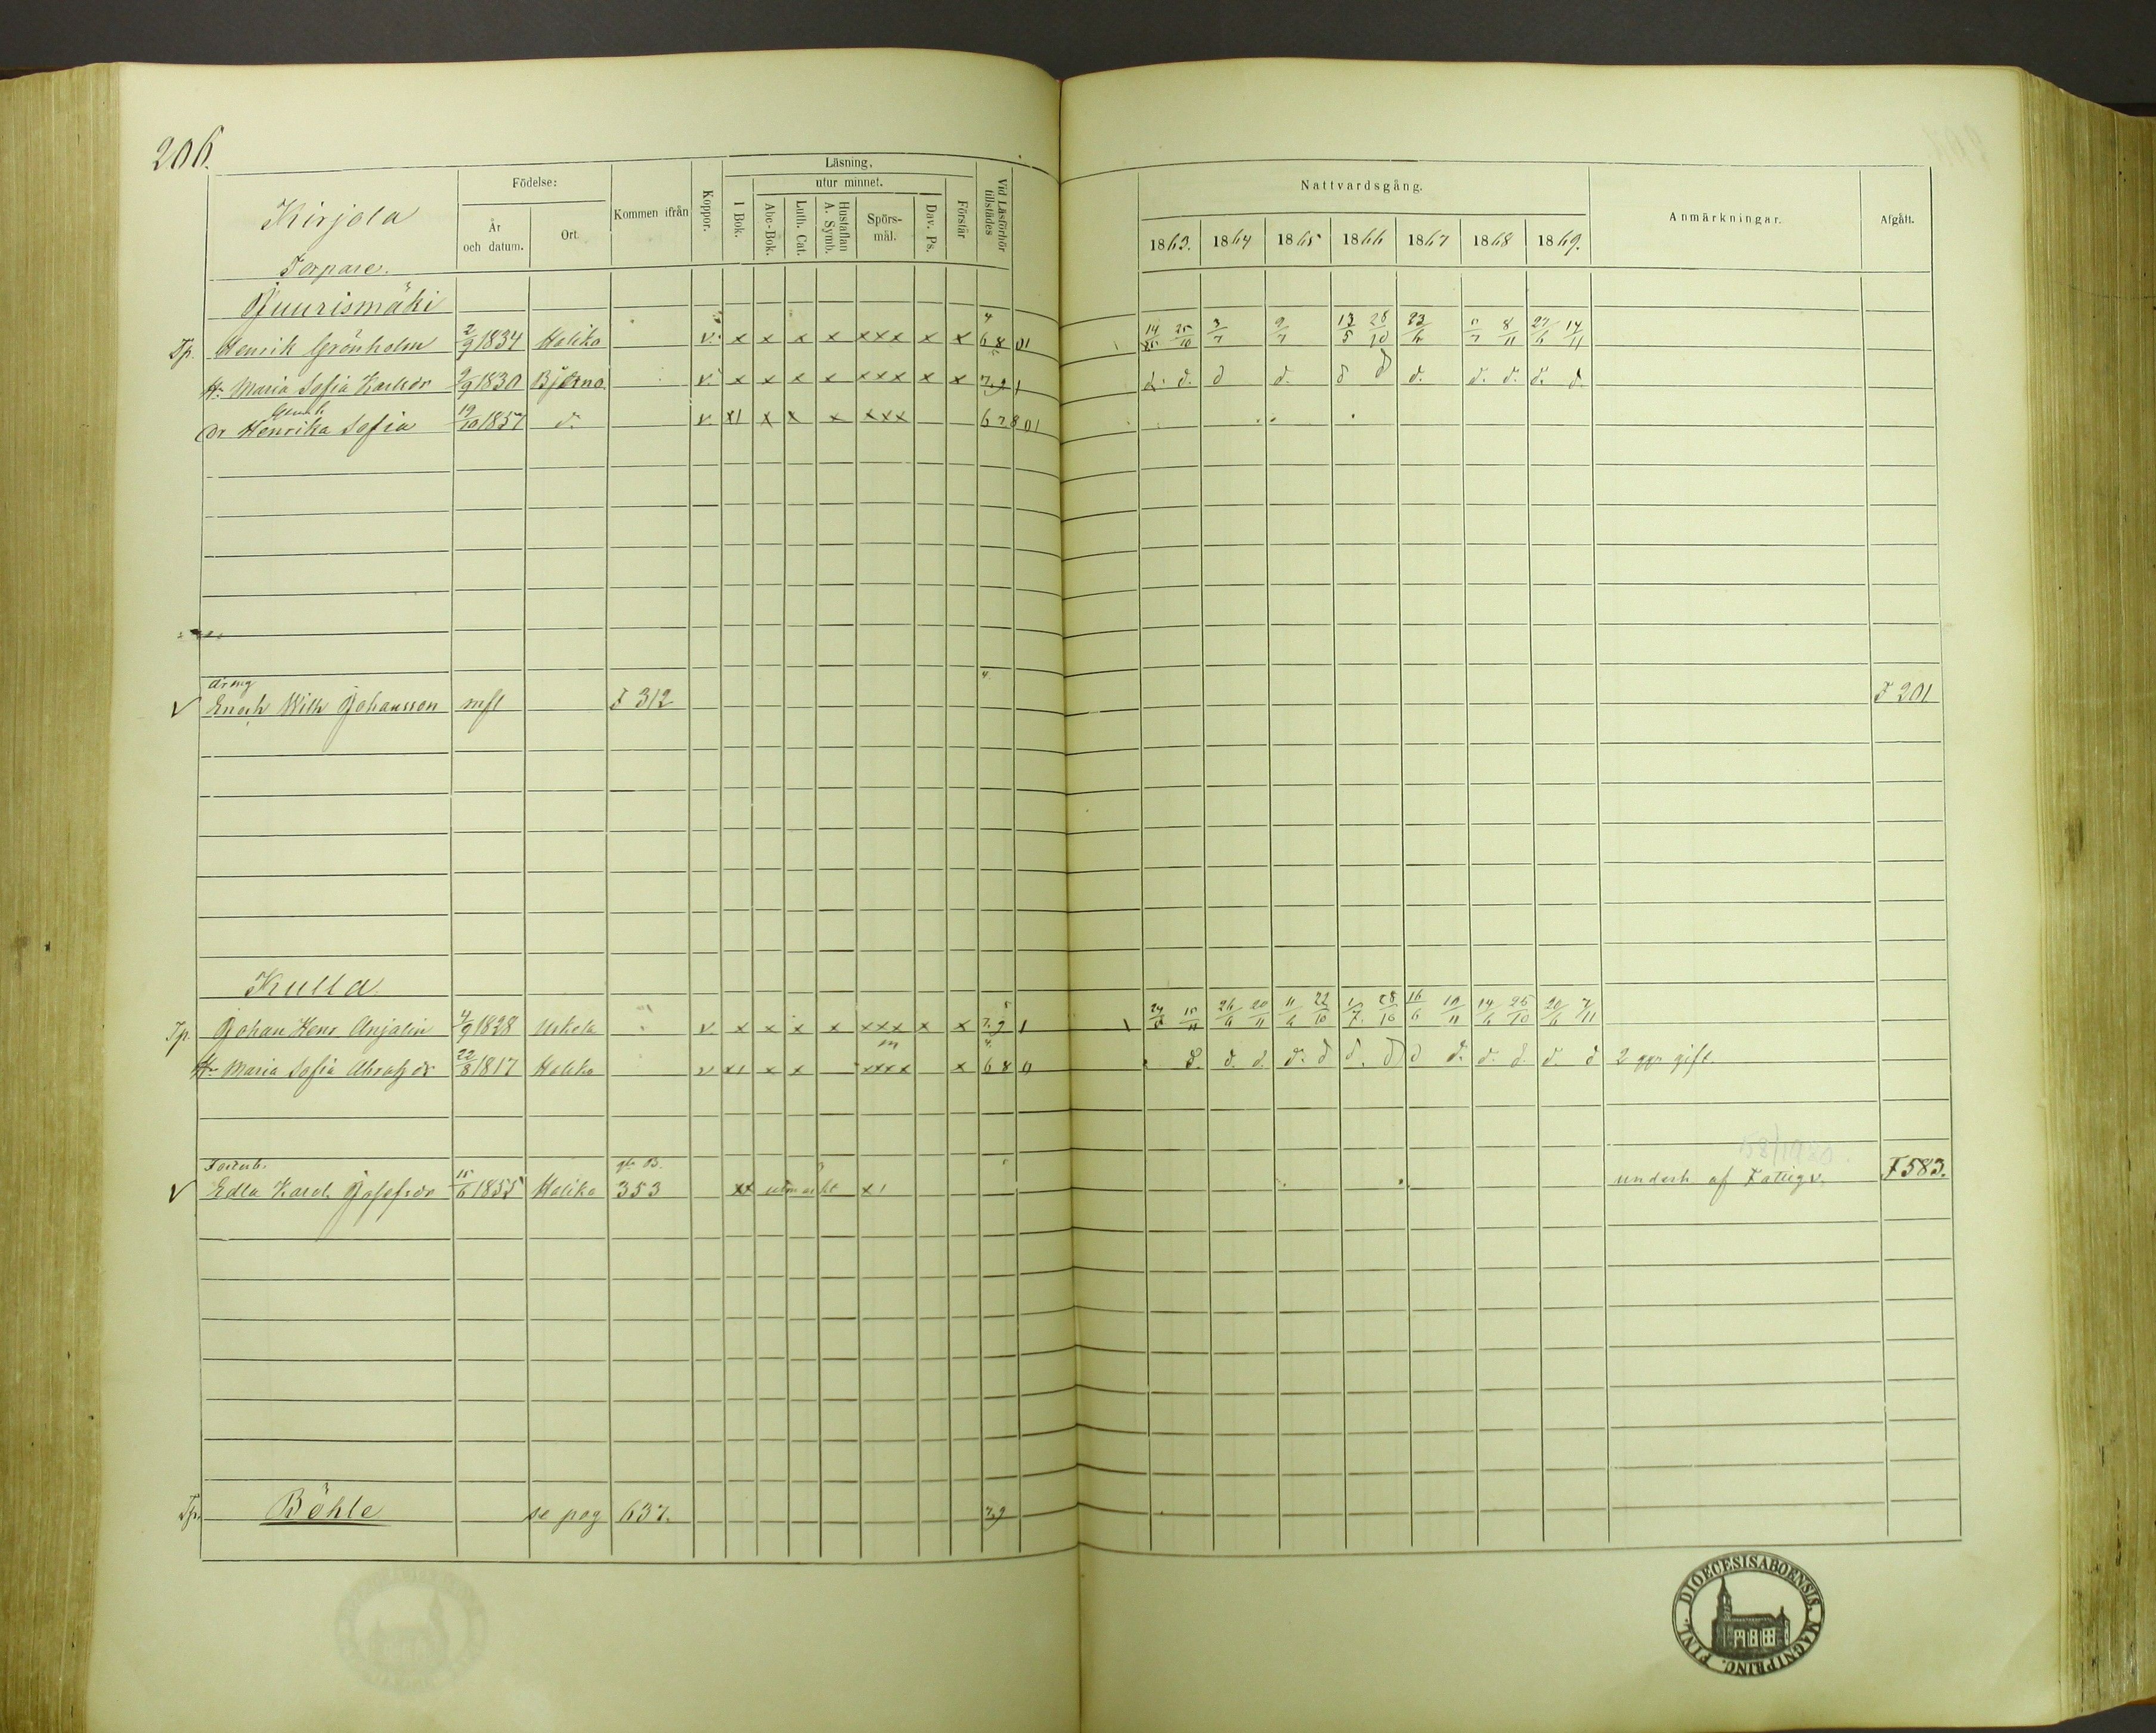 206.
Läsning.
Födelse:
utur minnet.
Kirjola
Kommen ifrån
Koppor.
I Bok.
Abc-Bok.
Luth. Cat.
Hustaflan A. Symb.
Spörs-mål.
Dav. Ps.
Förstår
Vid Läsförhör tillstädes
År och datum.
Ort.
Nattvardsgång.
Anmärkningar.
Afgått.
1863. 1864 1865 1866 1867 1868 1869.
Torpare.
Juurismäki
Tp. Henrik Grönholm 2/9 1834 Haliko v. x x x x xxx x x 6 8 01 14 25/10 3/7 9/7 13/5 28/10 23/6 8/11 27/6 14/11
Hr Maria Sofia Karlsdr 9/9 1830 Bjerno v. x x x x xxx x x 7.9 1 d. d. d d. d d d. d. d. d. d.
Dr Henrika Sofia 19/10 1857 d:o v. x1 x x x xxx 6 7 8 01
dräng
v Enoch Wilh Johansson mfl F 312 F 201
Kulla
Tp. Johan Henr Anjalin 4/9 1828 Uskela v. x x x x xxx x x 7.9 1 24 15/11 26/6 20/11 11/6 22/10 1/7. 28/10 16/6 10/11 14/6 25/10 20/6 7/11
Hr Maria Sofia Abrahdr 22/8 1817 Haliko v x1 x x xxxx x 6 8 0, d. d. d. d. d d. d d d. d. d. d. d 2 ggr gift.
v Edla Karol. Josefsdr 15/6 1855 Haliko 353 xx utmärkt x1 underh. af Fattigv. F 583.
Tp. Böhle se pag 637. 7.9
DIOECESIS ABOENSIS. MAGNI PRINC. FINL.